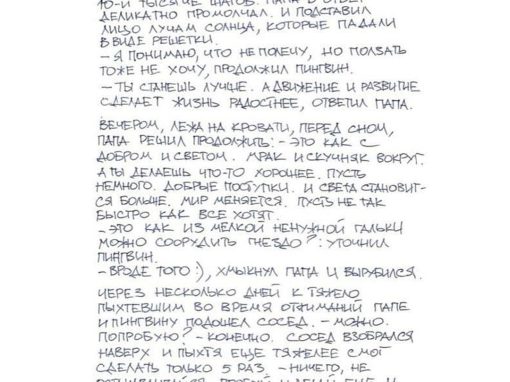 10-И ТЫСЯЧЕ ШАГОВ. ПАПА В ОТВЕТ
ДЕЛИКАТНО ПРОМОЛЧАЛ. И ПОДСТАВИЛ
ЛИЦО ЛУЧАМ СОЛНЦА, КОТОРЫЕ ПАДАЛИ
В ВИДЕ РЕШЕТКИ.
– Я ПОНИМАЮ, ЧТО НЕ ПОЛЕЧУ, НО ПОЛЗАТЬ
ТОЖЕ НЕ ХОЧУ, ПРОДОЛЖИЛ ПИНГВИН.
– ТЫ СТАНЕШЬ ЛУЧШЕ. А ДВИЖЕНИЕ И РАЗВИТИЕ
СДЕЛАЕТ ЖИЗНЬ РАДОСТНЕЕ, ОТВЕТИЛ ПАПА.
ВЕЧЕРОМ, ЛЕЖА НА КРОВАТИ, ПЕРЕД СНОМ,
ПАПА РЕШИЛ ПРОДОЛЖИТЬ: – ЭТО КАК С
ДОБРОМ И СВЕТОМ. МРАК И СКУЧНЯК ВОКРУГ.
А ТЫ ДЕЛАЕШЬ ЧТО-ТО ХОРОШЕЕ. ПУСТЬ
НЕМНОГО. ДОБРЫЕ ПОСТУПКИ. И СВЕТА СТАНОВИТ-
СЯ БОЛЬШЕ. МИР МЕНЯЕТСЯ. ПУСТЬ НЕ ТАК
БЫСТРО КАК ВСЕ ХОТЯТ.
– ЭТО КАК ИЗ МЕЛКОЙ НЕНУЖНОЙ ГАЛЬКИ
МОЖНО СООРУДИТЬ ГНЕЗДО?: УТОЧНИЛ
ПИНГВИН.
– ВРОДЕ ТОГО :), ХМЫКНУЛ ПАПА И ВЫРУБИЛСЯ.
ЧЕРЕЗ НЕСКОЛЬКО ДНЕЙ К ТЯЖЕЛО
ПЫХТЕВШИМ ВО ВРЕМЯ ОТЖИМАНИЙ ПАПЕ
И ПИНГВИНУ ПОДОШЕЛ СОСЕД. – МОЖНО.
ПОПРОБУЮ? – КОНЕЧНО. СОСЕД ВЗОБРАЛСЯ
НАВЕРХ И ПЫХТЯ ЕЩЕ ТЯЖЕЛЕЕ СМОГ
СДЕЛАТЬ ТОЛЬКО 5 РАЗ. – НИЧЕГО, НЕ